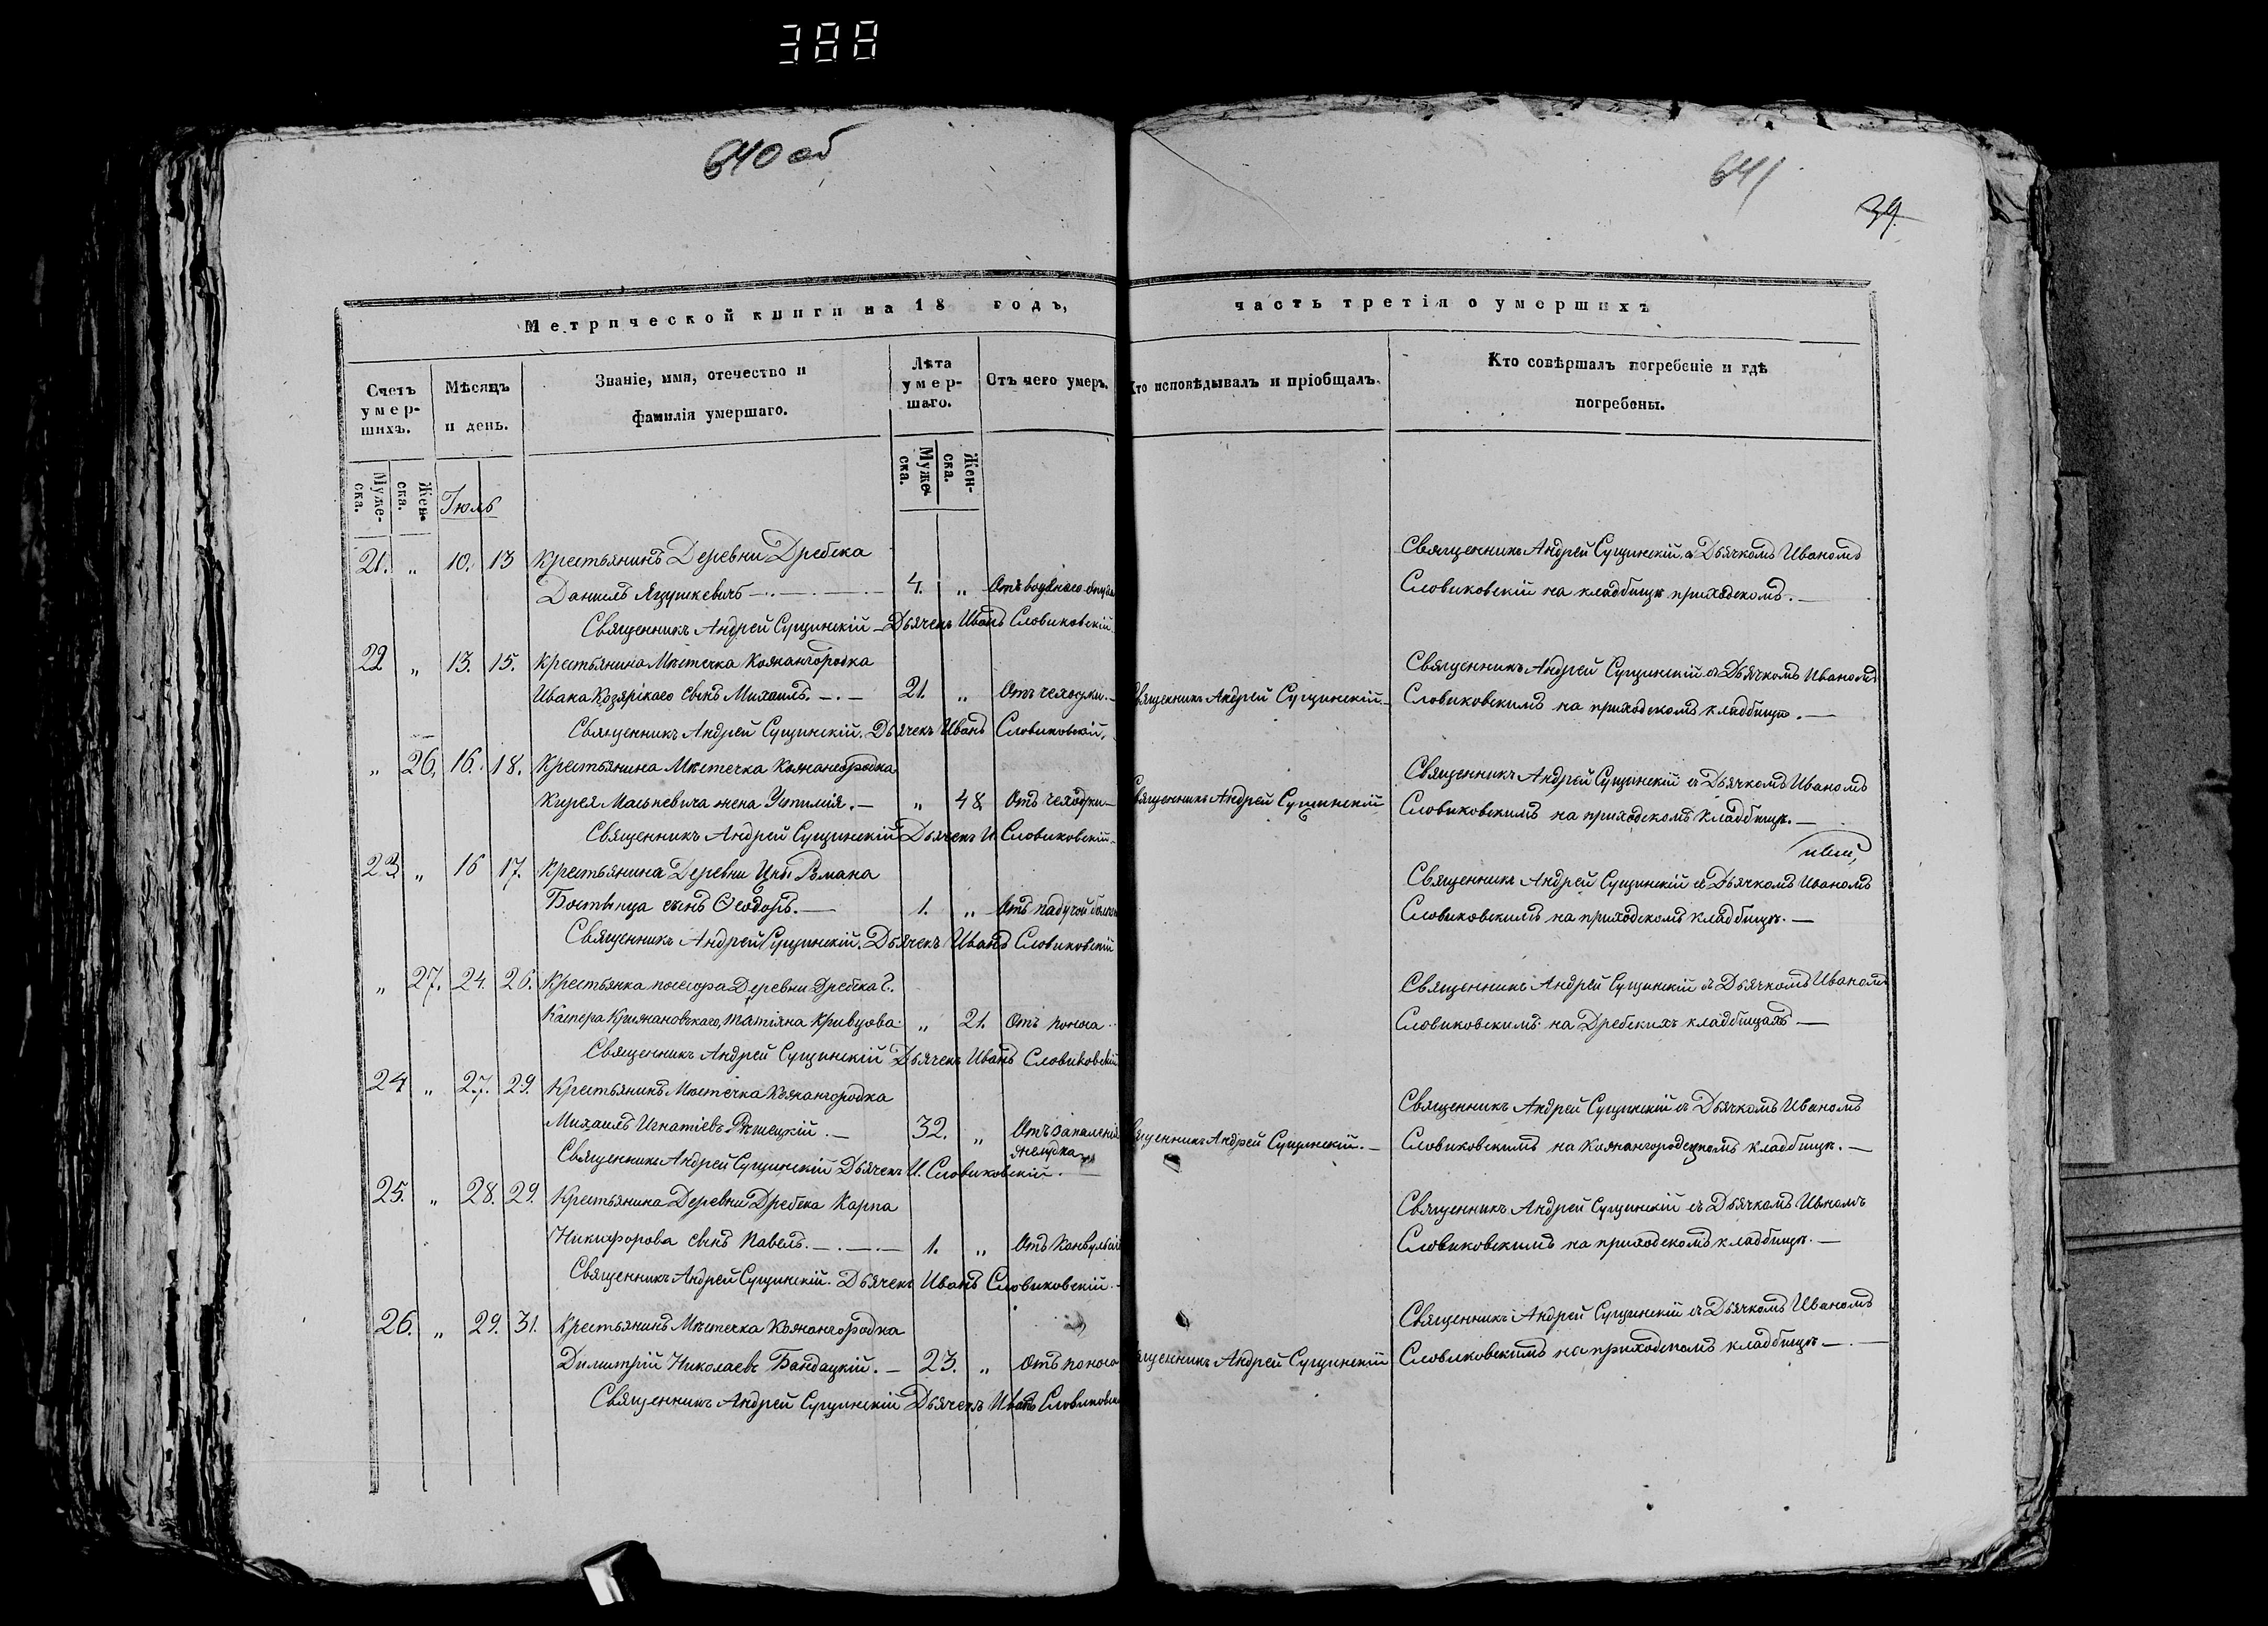 388
640 об
641
39.
Метрической книги на 18 годъ,
часть третія о умершихъ
Счетъ умер-шихъ.
Мѣсяцъ и день.
Званіе, имя, отечество и фамилія умершаго.
Лѣта умер-шаго.
Отъ чего умеръ.
Кто исповѣдывалъ и пріобщалъ.
Кто совѣршалъ погребеніе и гдѣ погребены.
Муже-ска.
Жен-ска.
Муже-ска.
Жен-ска.
Іюль
21. „ 10. 13 Крестьянинъ Деревни Дребска
Священникъ Андрей Сущинскій съ Дьячкомъ Иваномъ
Даниилъ Язушкевичъ 4. „ Отъ водянаго
Словиковскій на кладбищѣ приходскомъ.
Священникъ Андрей Сущинскій Дьячекъ Иванъ Словиковскій.
22 „ 13. 15. Крестьянина Мѣстечка Кожангородка
Священникъ Андрей Сущинскій съ Дьячкомъ Иваномъ
Ивана сынъ Михаилъ. 21. „ Отъ чахотки. Священникъ Андрей Сущинскій.
Словиковскимъ на приходскомъ кладбищѣ.
Священникъ Андрей Сущинскій. Дьячекъ Иванъ Словиковскій.
„ 26. 16. 18. Крестьянина Мѣстечка Кожангородка
Священникъ Андрей Сущинскій съ Дьячкомъ Иваномъ
Кирея Масьневича жена 48 Отъ чахотки Священникъ Андрей Сущинскій
Словиковскимъ на приходскомъ кладбищѣ.
Священникъ Андрей Сущинскій Дьячекъ И Словиковскій.
23 „ 16 17. Крестьянина Деревни Цны Романа
Священникъ Андрей Сущинскій съ Дьячкомъ Иваномъ
сынъ Ѳеодоръ. 1. „ Отъ падучой
Словиковскимъ на приходскомъ кладбищѣ.
Священникъ Андрей Сущинскій. Дьячекъ Иванъ Словиковскій
„ 27. 24. 26. Крестьянка Деревни Дребска Г.
Священникъ Андрей Сущинскій съ Дьячкомъ Иваномъ
Каспера Кржижановскаго, Татіяна Кривцова „ 21. Отъ поноса
Словиковскимъ на Дребскихъ кладбищахъ
Священникъ Андрей Сущинскій Дьячекъ Иванъ Словиковскій
24 „ 27. 29. Крестьянинъ Мѣстечка Кожангородка
Священникъ Андрей Сущинскій съ Дьячкомъ Иваномъ
Михаилъ Игнатіевъ 32. „ Отъ запаленія желудка Священникъ Андрей Сущинскій.
Словиковскимъ на Кожангородецкомъ кладбищѣ.
Священникъ Андрей Сущинскій Дьячекъ И. Словиковскій.
25. „ 28. 29. Крестьянина Деревни Дребска Карпа
Священникъ Андрей Сущинскій съ Дьячкомъ Иваномъ
Никифорова сынъ Павелъ. 1. „ Отъ конвульсіи
Словиковскимъ на приходскомъ кладбищѣ.
Священникъ Андрей Сущинскій. Дьячекъ Иванъ Словиковскій.
26. „ 29. 31. Крестьянинъ Мѣстечка Кожангородка
Священникъ Андрей Сущинскій съ Дьячкомъ Иваномъ
Димитрій Николаевъ Бандацкій. 23. „ Отъ поноса Священникъ Андрей Сущинскій
Словиковскимъ на приходскомъ кладбищѣ
Священникъ Андрей Сущинскій Дьячекъ Иванъ Словиковскій